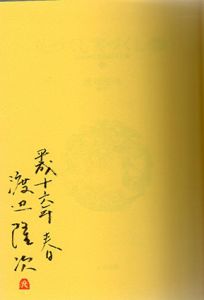 平成十六年 春
渡辺隆次